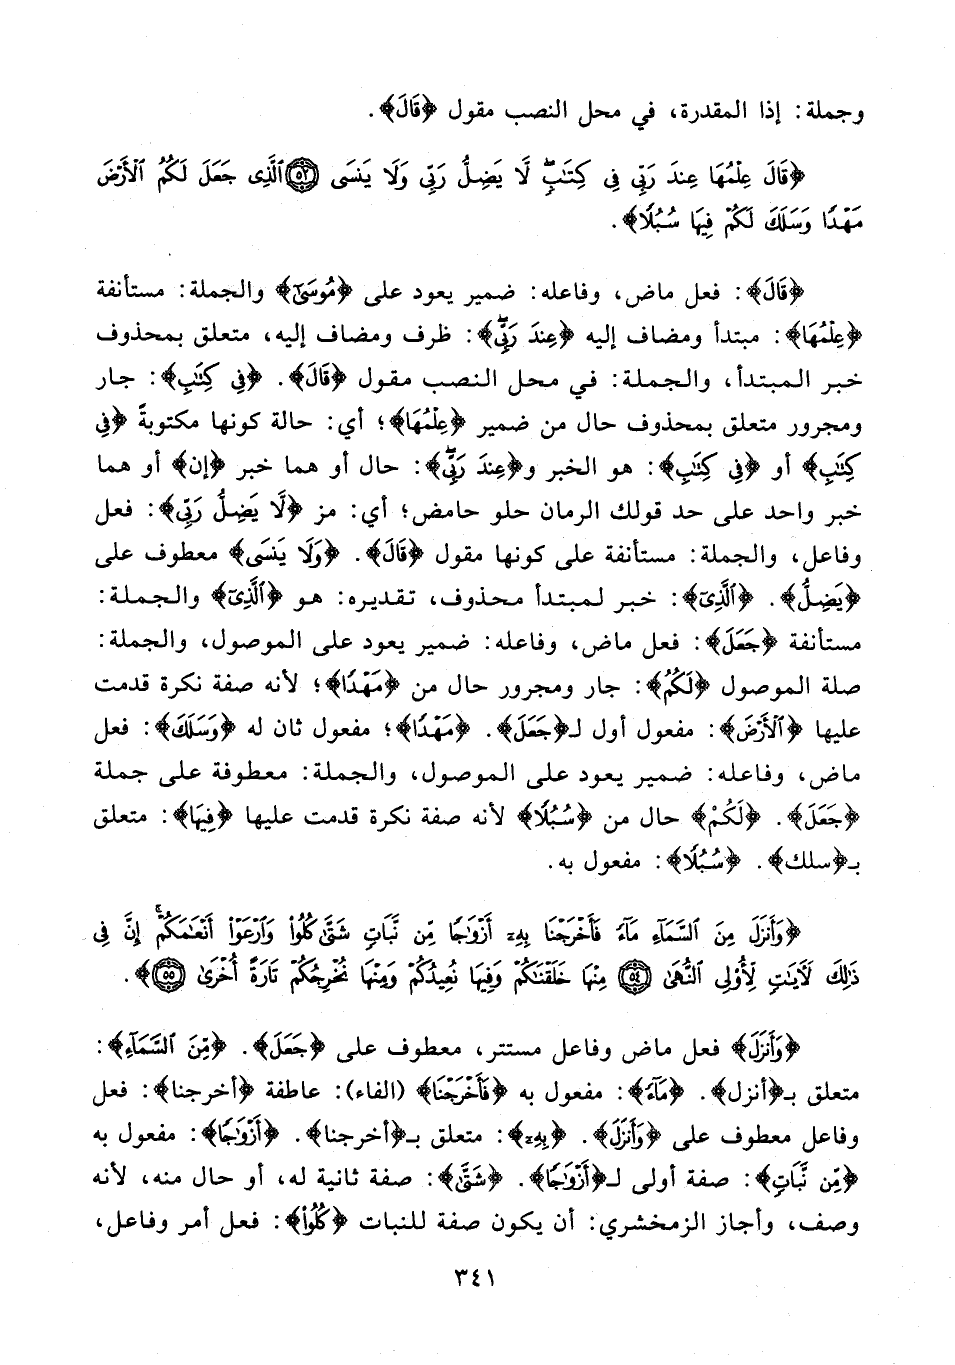 وجملة: إذا المقدرة، في محل النصب مقول ﴿قَالَ﴾.
﴿قَالَ عِلْمُهَا عِندَ رَبِّى فِى كِتَٰبٍۖ لَّا يَضِلُّ رَبِّى وَلَا يَنسَى ٥٢ ٱلَّذِى جَعَلَ لَكُمُ ٱلْأَرْضَ
مَهْدًا وَسَلَكَ لَكُمْ فِيهَا سُبُلًا﴾.
﴿قَالَ﴾: فعل ماض، وفاعله: ضمير يعود على ﴿مُوسَىٰ﴾ والجملة: مستأنفة
﴿عِلْمُهَا﴾: مبتدأ ومضاف إليه ﴿عِندَ رَبِّى﴾: ظرف ومضاف إليه، متعلق بمحذوف
خبر المبتدأ، والجملة: في محل النصب مقول ﴿قَالَ﴾. ﴿فِى كِتَٰبٍ﴾: جار
ومجرور متعلق بمحذوف حال من ضمير ﴿عِلْمُهَا﴾؛ أي: حالة كونها مكتوبةً ﴿فِى
كِتَٰبٍ﴾ أو ﴿فِى كِتَٰبٍ﴾: هو الخبر و﴿عِندَ رَبِّى﴾: حال أو هما خبر ﴿إن﴾ أو هما
خبر واحد على حد قولك الرمان حلو حامض؛ أي: مز ﴿لَّا يَضِلُّ رَبِّى﴾: فعل
وفاعل، والجملة: مستأنفة على كونها مقول ﴿قَالَ﴾. ﴿وَلَا يَنسَى﴾ معطوف على
﴿يَضِلُّ﴾. ﴿ٱلَّذِى﴾: خبر لمبتدأ محذوف، تقديره: هو ﴿ٱلَّذِى﴾ والجملة:
مستأنفة ﴿جَعَلَ﴾: فعل ماض، وفاعله: ضمير يعود على الموصول، والجملة:
صلة الموصول ﴿لَكُمُ﴾: جار ومجرور حال من ﴿مَهْدًا﴾؛ لأنه صفة نكرة قدمت
عليها ﴿ٱلْأَرْضَ﴾: مفعول أول لـ﴿جَعَلَ﴾. ﴿مَهْدًا﴾؛ مفعول ثان له ﴿وَسَلَكَ﴾: فعل
ماض، وفاعله: ضمير يعود على الموصول، والجملة: معطوفة على جملة
﴿جَعَلَ﴾. ﴿لَكُمْ﴾ حال من ﴿سُبُلًا﴾ لأنه صفة نكرة قدمت عليها ﴿فِيهَا﴾: متعلق
بـ﴿سلك﴾. ﴿سُبُلًا﴾: مفعول به.
﴿وَأَنزَلَ مِنَ ٱلسَّمَآءِ مَآءً فَأَخْرَجْنَا بِهِۦٓ أَزْوَٰجًا مِّن نَّبَاتٍ شَتَّىٰ كُلُوا۟ وَٱرْعَوْا۟ أَنْعَٰمَكُمْۗ إِنَّ فِى
ذَٰلِكَ لَءَايَٰتٍ لِّأُو۟لِى ٱلنُّهَىٰ ٥٤ مِنْهَا خَلَقْنَٰكُمْ وَفِيهَا نُعِيدُكُمْ وَمِنْهَا نُخْرِجُكُمْ تَارَةً أُخْرَىٰ ٥٥﴾.
﴿وَأَنزَلَ﴾ فعل ماض وفاعل مستتر، معطوف على ﴿جَعَلَ﴾. ﴿مِّنَ ٱلسَّمَآءِ﴾:
متعلق بـ﴿أنزل﴾. ﴿مَآءً﴾: مفعول به ﴿فَأَخْرَجْنَا﴾ (الفاء): عاطفة ﴿أخرجنا﴾: فعل
وفاعل معطوف على ﴿وَأَنزَلَ﴾. ﴿بِهِۦ﴾: متعلق بـ﴿أخرجنا﴾. ﴿أَزْوَٰجًا﴾: مفعول به
﴿مِّن نَّبَاتٍ﴾: صفة أولى لـ﴿أَزْوَٰجًا﴾. ﴿شَتَّىٰ﴾: صفة ثانية له، أو حال منه، لأنه
وصف، وأجاز الزمخشري: أن يكون صفة للنبات ﴿كُلُوا۟﴾: فعل أمر وفاعل،
٣٤١